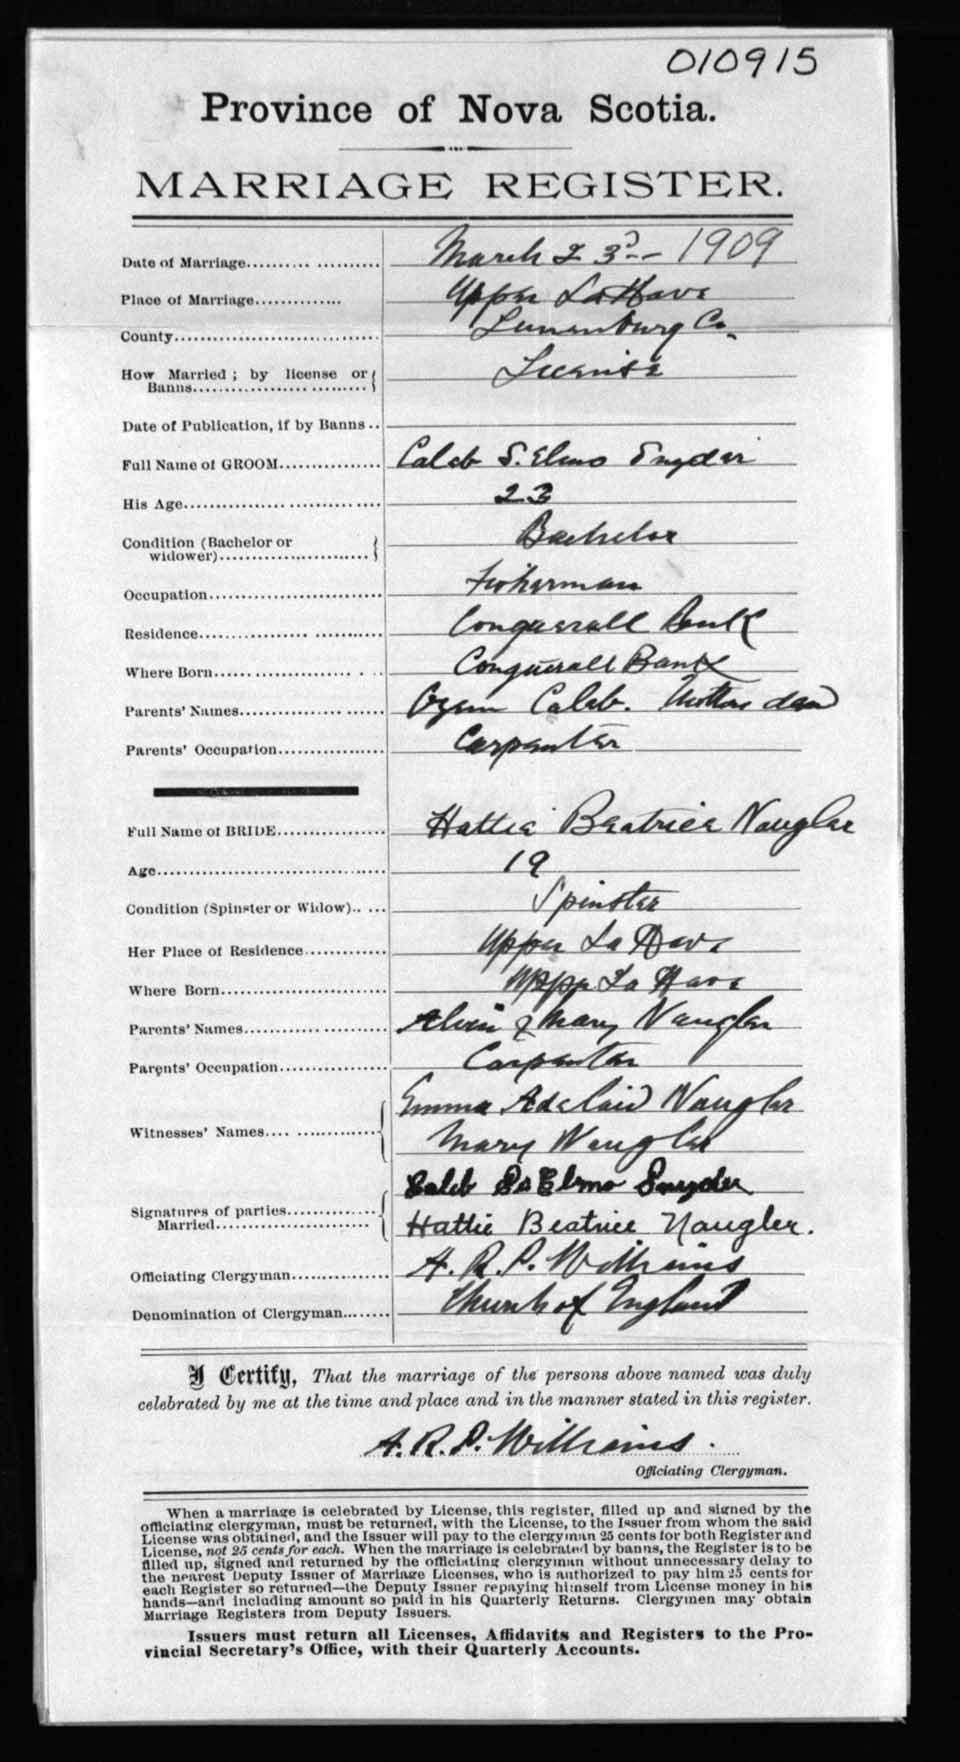 010915
Province of Nova Scotia.
MARRIAGE REGISTER.
Date of Marriage.................... March 23rd - 1909
Place of Marriage............. Upper LaHave
County............................... Lunenburg Co.
How Married ; by license or Banns......................... License
Date of Publication, if by Banns ..
Full Name of GROOM............... Caleb S. Elmo Snyder
His Age............................... 23
Condition (Bachelor or widower)...................... Bachelor
Occupation......................... Fisherman
Residence.......................... Conquerall Bank
Where Born....................... Conquerall Bank
Parents' Names..................... Caleb. Mother dead
Parents' Occupation................ Carpenter
Full Name of BRIDE................ Hattie Beatrice Naugler
Age................................... 19
Condition (Spinster or Widow)..... Spinster
Her Place of Residence............ Upper La Have
Where Born........................ Upper La Have
Parents' Names..................... Alvin & Mary Naugler
Parents' Occupation................ Carpenter
Witnesses' Names................. Emma Adelaid Naugler
Mary Naugler
Caleb St Elmo Snyder
Signatures of parties Married..................... Hattie Beatrice Naugler.
Officiating Clergyman.............. A. R. P. Williams
Denomination of Clergyman........ Church of England
I Certify, That the marriage of the persons above named was duly
celebrated by me at the time and place and in the manner stated in this register.
A. R. P. Williams.
Officiating Clergyman.
When a marriage is celebrated by License, this register, filled up and signed by the
officiating clergyman, must be returned, with the License, to the Issuer from whom the said
License was obtained, and the Issuer will pay to the clergyman 25 cents for both Register and
License, not 25 cents for each. When the marriage is celebrated by banns, the Register is to be
filled up, signed and returned by the officiating clergyman without unnecessary delay to
the nearest Deputy Issuer of Marriage Licenses, who is authorized to pay him 25 cents for
each Register so returned—the Deputy Issuer repaying himself from License money in his
hands—and including amount so paid in his Quarterly Returns. Clergymen may obtain
Marriage Registers from Deputy Issuers.
Issuers must return all Licenses, Affidavits and Registers to the Pro-
vincial Secretary's Office, with their Quarterly Accounts.